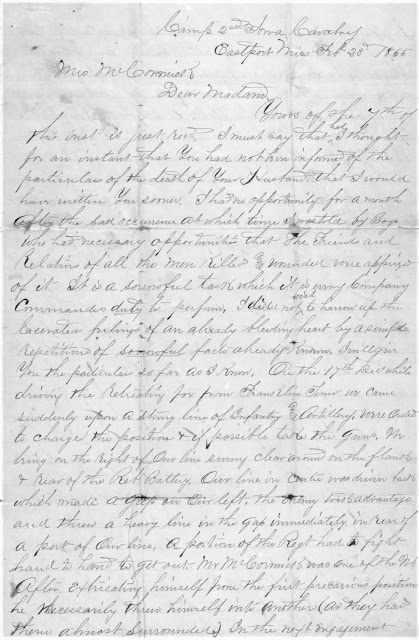 Camp 2nd Iowa Cavalry
Eastport Miss Feb 23d 1865
Mrs McCormick
Dear Madam
Yours of the 7th of
this inst is just recd I must say that had I thought
for an instant that You had not been informed of the
particulars of the death of Your Husband that I would
have written You sooner. I had no opportunity for a month
after the sad occurence at which time I was told by Boys
who had necessary opportunities that the Friends and
Relatives of all the men Killed & wounded were apprised
of it. It is a sorrowful task which it is every Company
Commanders duty to perform, I did not wish to harrow up the
lacerated feelings of an already bleeding heart by a
repetition of sorrowful facts already Known. I will give
You the particulars so far as I know. On the 17th Dec while
driving the Retreating foe from Franklin Tenn we came
suddenly upon a strong line of Infantry & Artillery, were ordered
to charge the position & if possible take the Guns. We
being on the Right of Our line swung clear around on the flank
& Rear of the Reb Battery. Our line in center was driven back
which made a gap on Our left, the enemy took advantage
and threw a heavy line in the Gap immediately in rear of
a part of Our line. A portion of the Regt had to fight
hand to hand to get out. Mr McCormick was one of the No
After Extricating himself from the first precarious position
he necessarily threw himself into another (as they had
them almost surrounded) In the next engagement